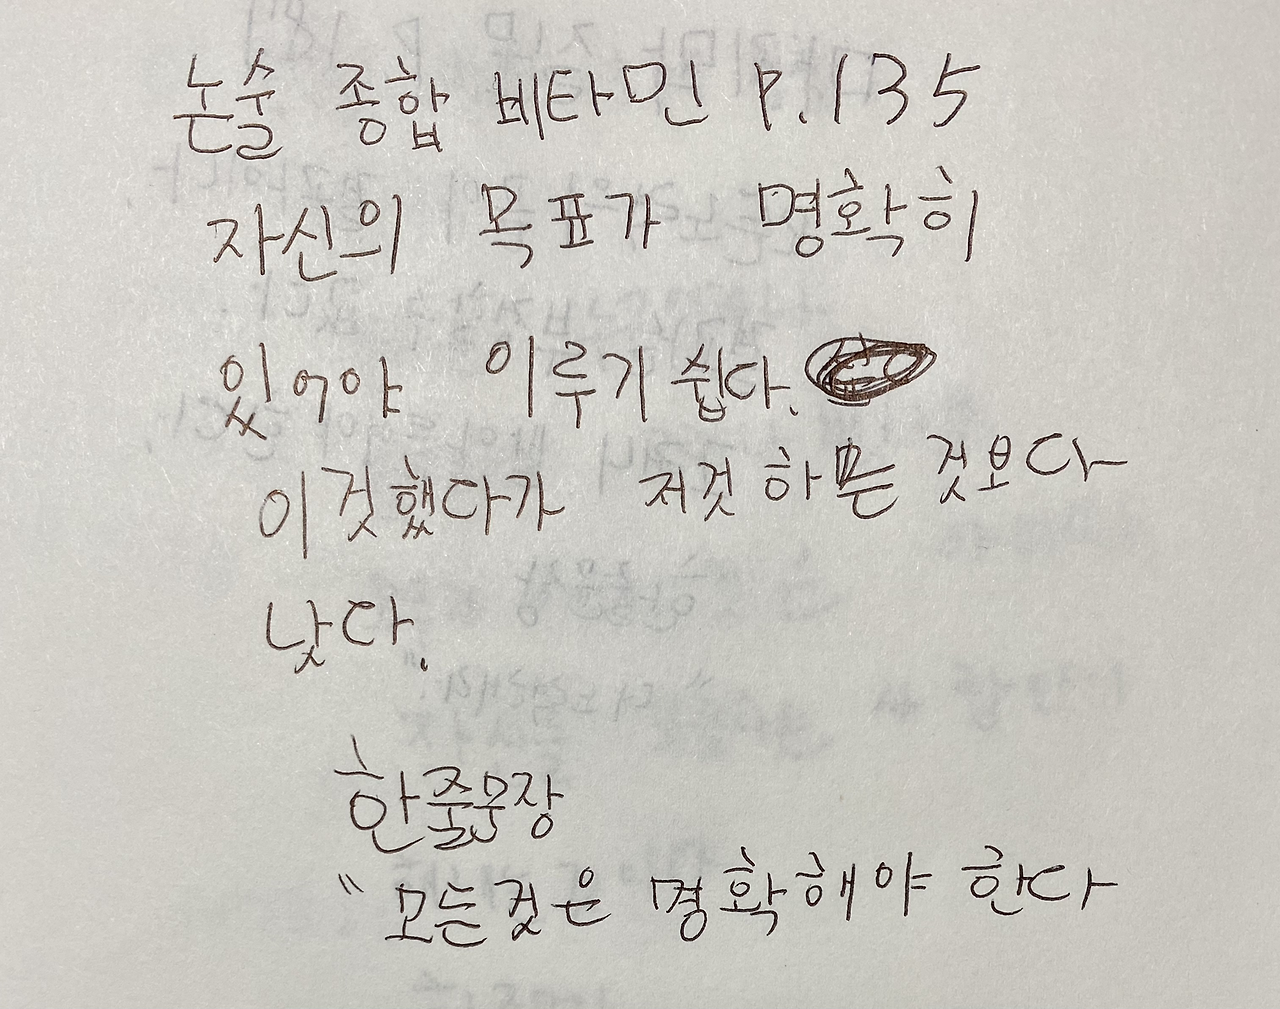 논술 종합 비타민 P.135
자신의 목표가 명확히
있어야 이루기 쉽다.
이것했다가 저것 하는 것보다
낫다.
한줄문장
"모든것은 명확해야 한다